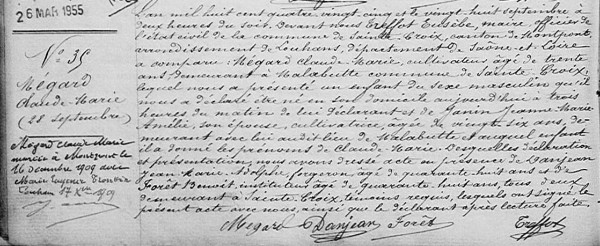 26 MAR 1955
N° 35
Mégard
Claude Marie
(28 septembre)
Mégard Claude Marie
marié à Montpont le
16 décembre 1909 avec
Marie Eugénie
Louhans 17 Xbre 1909
L'an mil huit cent quatre-vingt-cinq et le vingt-huit septembre à
deux heures du soir, devant nous Treffot Eusèbe, maire officier de
l'état civil de la commune de Sainte-Croix, canton de Montpont,
arrondissement de Louhans, département de Saône et Loire
a comparu: Mégard Claude-Marie, cultivateur, âgé de trente
ans, demeurant à Malabutte commune de Sainte-Croix,
lequel nous a présenté un enfant du sexe masculin qu'il
nous a déclaré être né en son domicile aujourd'hui à trois
heures du matin de lui déclarant et de Janin Jeanne-Marie
Amélie, son épouse, cultivatrice, âgée de vingt six ans, de-
meurant avec lui audit lieu de Malabutte et auquel enfant
il a donné les prénoms de Claude-Marie. Desquelles déclaration
et présentation, nous avons dressé acte en présence de Danjean
Jean-Marie-Adolphe, forgeron, âgé de quarante huit ans et de
Forêt Benoit, instituteur, âgé de quarante-huit ans, tous deux
demeurant à Sainte-Croix, témoins requis, lesquels ont signé le
présent acte avec nous, ainsi que le déclarant après lecture faite.
Mégard Danjean Forêt Treffot